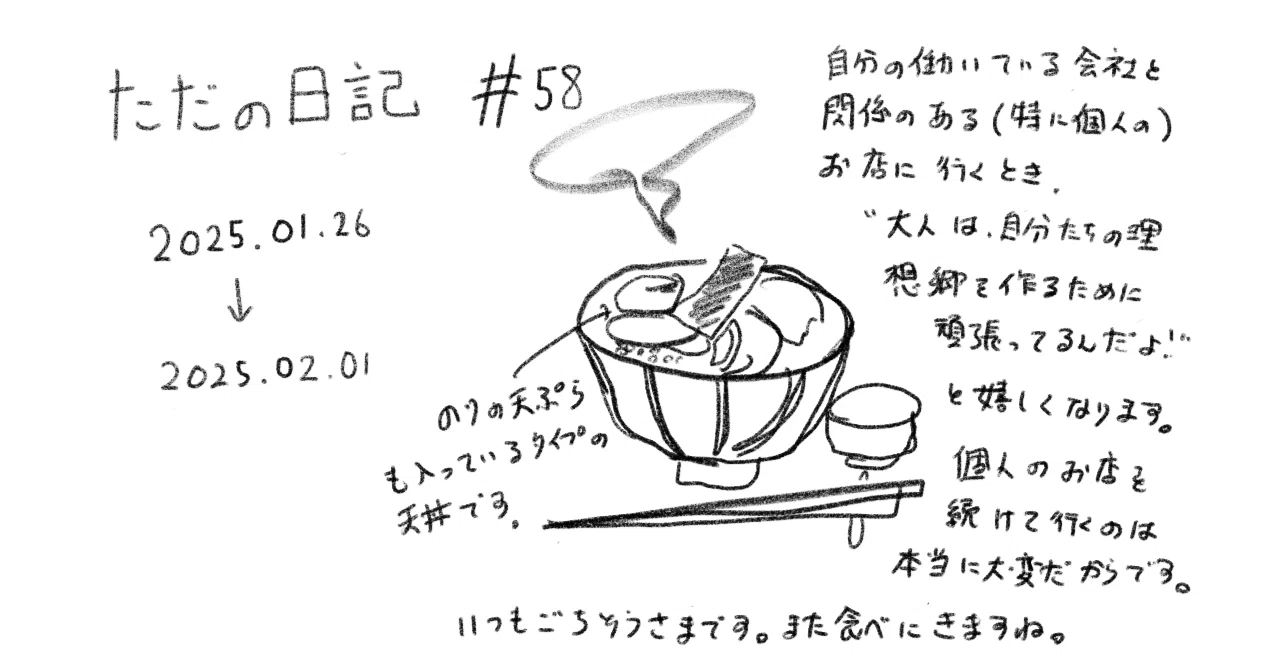 ただの日記 #58
2025.01.26
↓
2025.02.01
自分の働いている会社と
関係のある(特に個人の)
お店に行くとき、
"大人は、自分たちの理
想郷を作るために
頑張ってるんだよ!"
と嬉しくなります。
個人のお店を
続けて行くのは
本当に大変だからです。
のりの天ぷら
も入っているタイプの
天丼です。
いつもごちそうさまです。また食べにきますね。